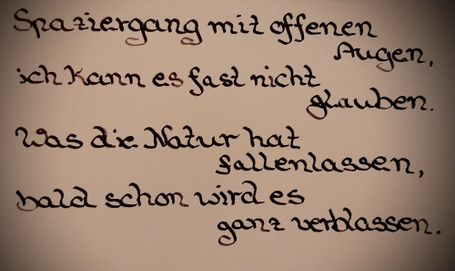 Spaziergang mit offenen
Augen,
ich kann es fast nicht
glauben.
Was die Natur hat
fallenlassen,
bald schon wird es
ganz verblassen.